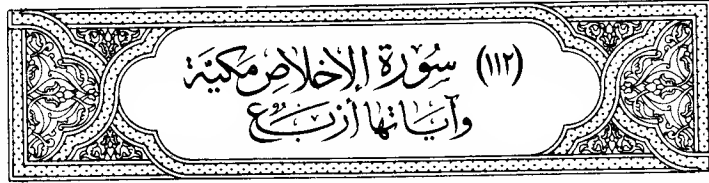 (١١٢) سُورَة الإخلاص مَكيَّة
وآيَاتها أرْبَعُ